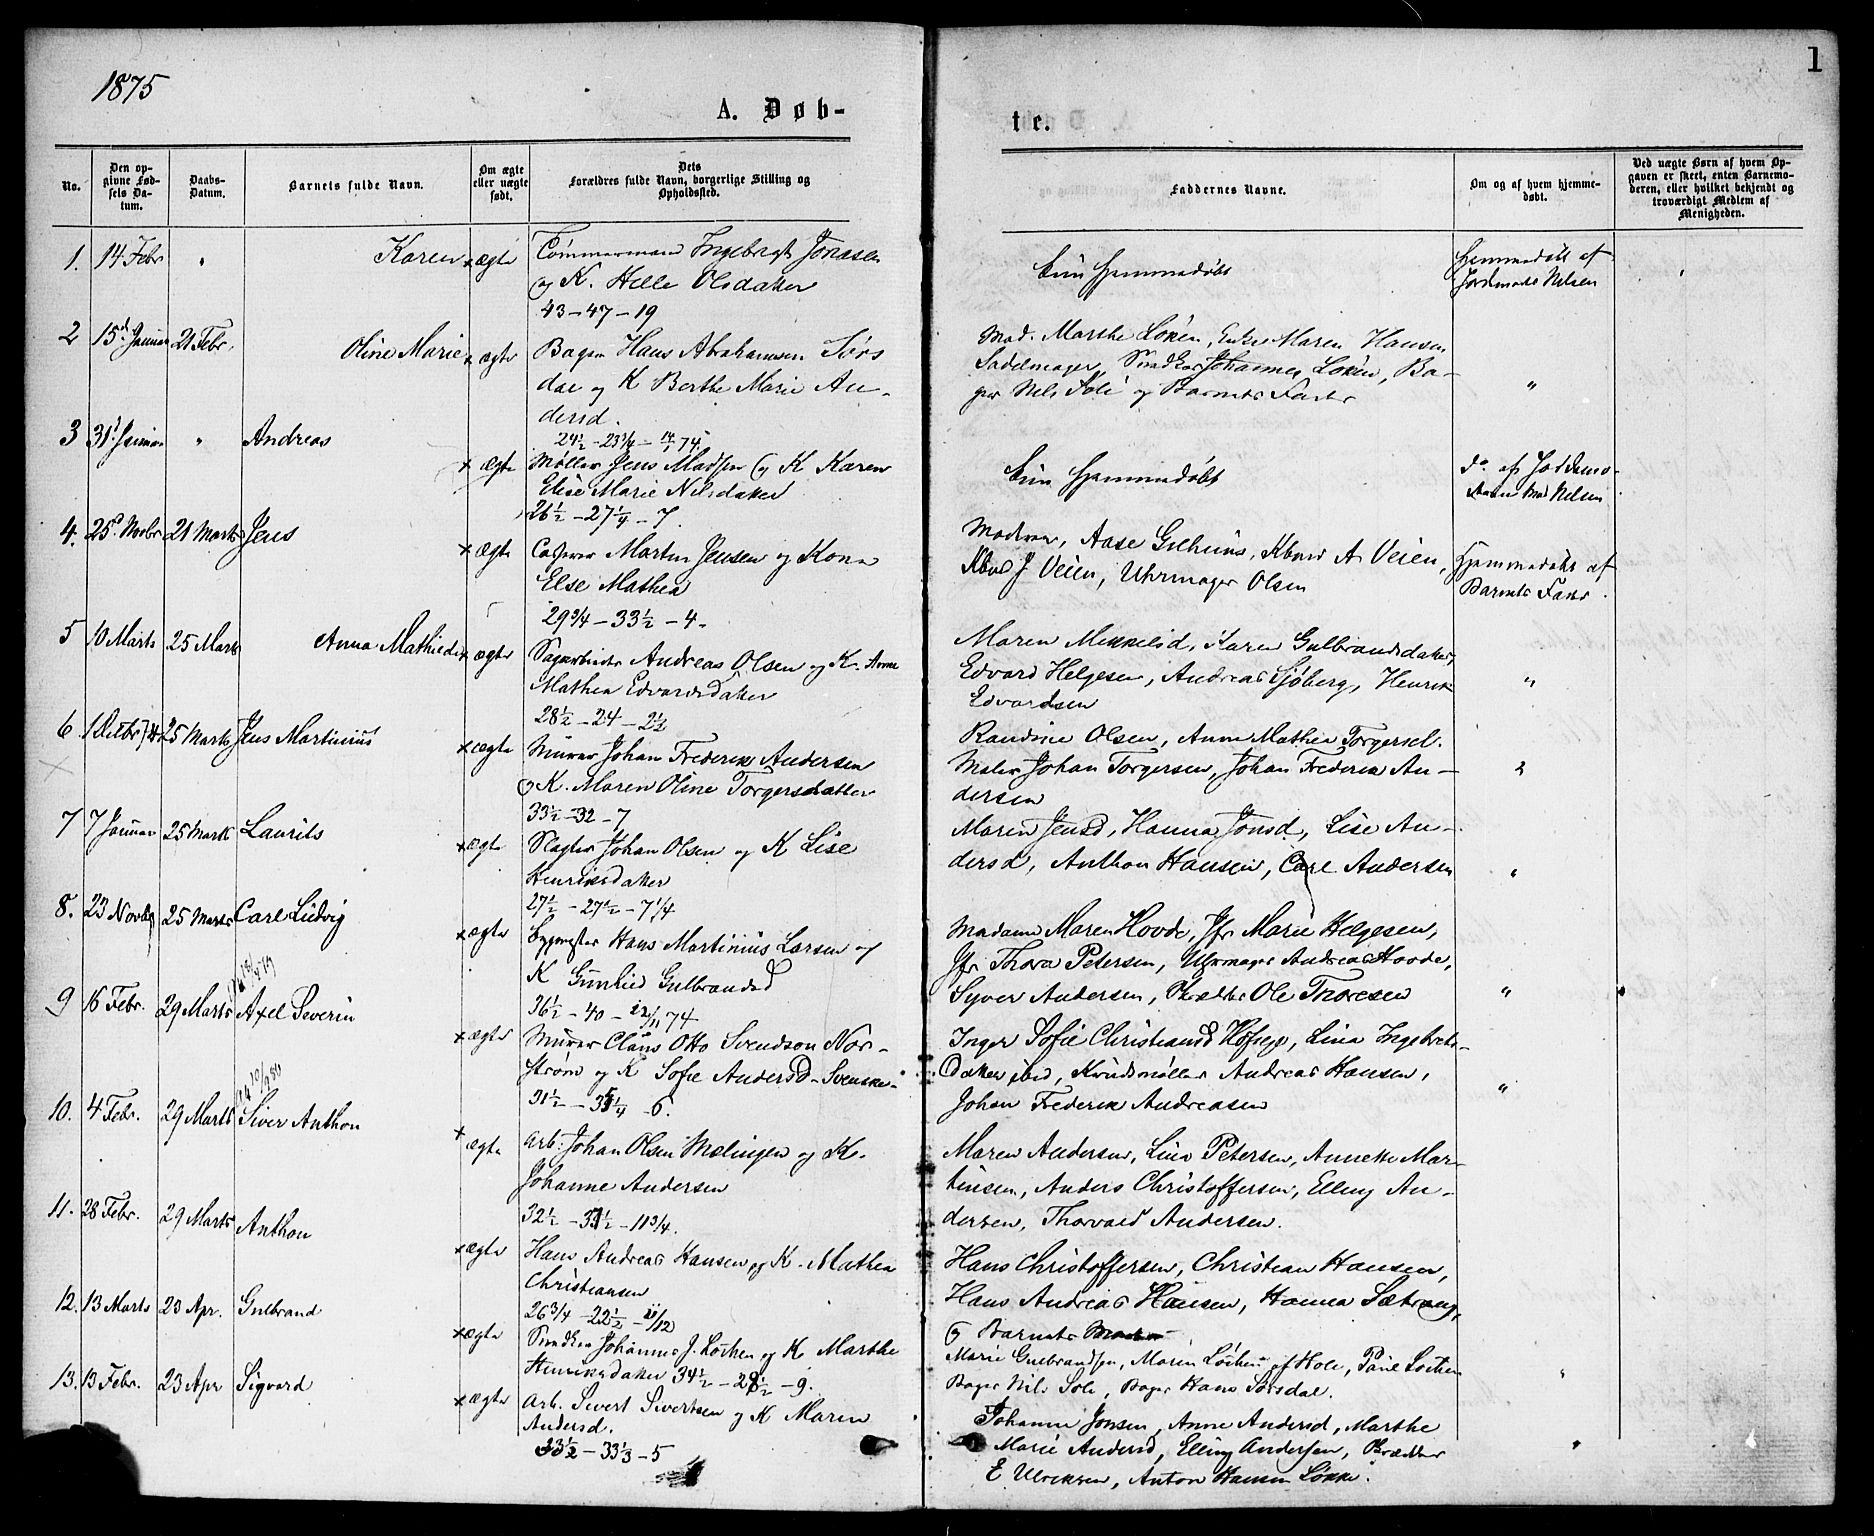 1875
1
A. Døb-
te.
No.
Den op-
givne Fød-
sels Da-
tum.
Daabs-
Datum.
Barnets fulde Navn.
Om ægte
eller uægte
født.
Dets
Forældres fulde Navn, borgerlige Stilling og
Opholdssted.
Faddernes Navne.
Om og af hvem hjemme-
døbt.
Ved uægte Børn af hvem Op-
gaven er skeet, enten Barnemo-
deren, eller hvilket bekjendt og
troværdigt Medlem af
Menigheden.
1. 14 Febr " Karen ægte Tømmermand Ingebregt Jonasen
og K. Helle Olsdatter
43-47-19
Kun Hjemmedøbt
Hjemmedøbt af
Jordmoder Nelsen
2 15d Januar 21 Febr. Oline Marie ægte Bager Hans Abrahamsen Sørs
dal og K Berthe Marie An-
dersd.
24½-23¼-14/1 74.
Mad. Marthe Løken, Enke Maren Hansen
Sadelmager, Snedker Johannes Løken, Ba-
ger Nils Sole og Barnets Fader
"
3 31d Januar " Andreas ægte Møller Jens Madsen og K Karen
Elise Marie Nilsdatter
26½-27¼-7.
Kun Hjemmedøbt
do af Jordemo-
deren Mad Nelsen
4. 25d Novbr 21 Marts Jens ægte Martin Jensen og Kone
Else Mathea
29¾-33½-4-
Moderen, Aase Gulhuus, Kbmd A Veien,
Kbmd J Veien, Uhrmager Olsen
Hjemmedøbt af
Barnets Fader.
5 10 Marts 25 Marts Anna Mathilde ægte Andreas Olsen og K. Anne
Mathea Edvardsdatter
28½-24-2½
Maren Mikkelsd, Karen Gulbrandsdatter,
Edvard Helgesen, Andreas Sjøberg, Henrik
Edvardsen
"
6. 25 Marts Jens Martinius ægte Murer Johan Frederik Andersen
og K. Maren Oline Torgersdatter
33½-32-7
Randine Olsen, Anne Mathea Torgersd.
Maler Johan Torgersen, Johan Frederik An-
dersen
"
7 7 Januar 25 Mark Laurits ægte Slagter Johan Olsen og K Lise
Henriksdatter
27½-27½-7¼
Maren Jensd, Hanna Jonsd, Lise An-
dersd, Anthon Hansen, Carl Andersen
"
8. 23 Novbr 25 Marts Carl Ludvig ægte Bygmester Hans Martinius Larsen og
K Gunhild Gulbrandsd
36½-40-22/11 74
Madame Maren Hovde, Jfr Marie Helgesen,
Jfr Thora Petersen, Uhrmager Andreas Hovde,
Syver Andersen, Skrædder Ole Thoresen
"
9 16 Febr. 29 Marts Axel Severin ægte Murer Claus Otto Svendson Nor-
strøm og K Sofie Andersd-Svenske-
Inger Sofie Christiansd Lina Ingebrets-
datter ibid, Andreas Hansen,
Johan Frederik Andreasen
"
10. 4 Febr. 29 Marts Siver Anthon ægte Arb: Johan Olsen Mælingen og K.
Johanne Andersen
Maren Andersen, Lina Petersen, Annette Mar-
tinsen, Anders Christoffersen, Elling An-
dersen, Thorvald Andersen.
11. 28 Febr. 29 Marts Anthon ægte Hans Andreas Hansen og K. Mathea
Christiansen
26¾-22½-11/12
Hans Christoffersen, Christian Hansen,
Hans Andreas Hansen, Hanna Sætrang,
og Barnets Moder
12. 13 Marts 23 Apr. Gulbrand ægte Snedker Johannes J. Løcken og K Marthe
Henriksdatter
Marie Gulbrandsen, Maren Løchen af Hole, Paul Løchen
Bager Nils Sole, Bager Hans Sørsdal.
"
13. 13 Febr. 23 Apr Sigvard ægte Arb. Sivert Sivertsen og K Maren
Andersd.
33½-33⅓-5
Johanne Jonsen, Anne Andersd, Marthe
Marie Andersd, Elling Andersen,
E Ulriksen, Anton Hansen Løkke.
"